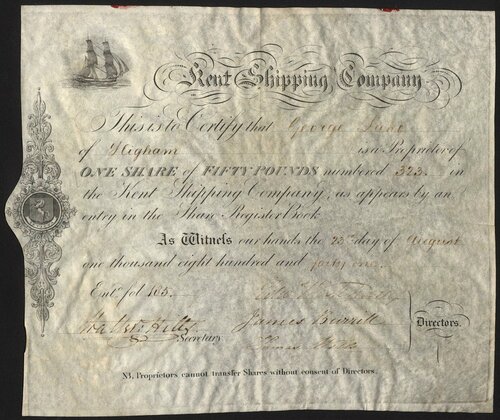 Kent Shipping Company
This is to Certify that George Lake
of Higham is a Proprietor of
ONE SHARE of FIFTY POUNDS numbered 323 in
the Kent Shipping Company, as appears by an
entry in the Share Register Book
As Witness our hands the 23rd day of August
one thousand eight hundred and forty one.
Entd. fol 165.
James Burrill
Secretary.
Directors.
NB, Proprietors cannot transfer Shares without consent of Directors.